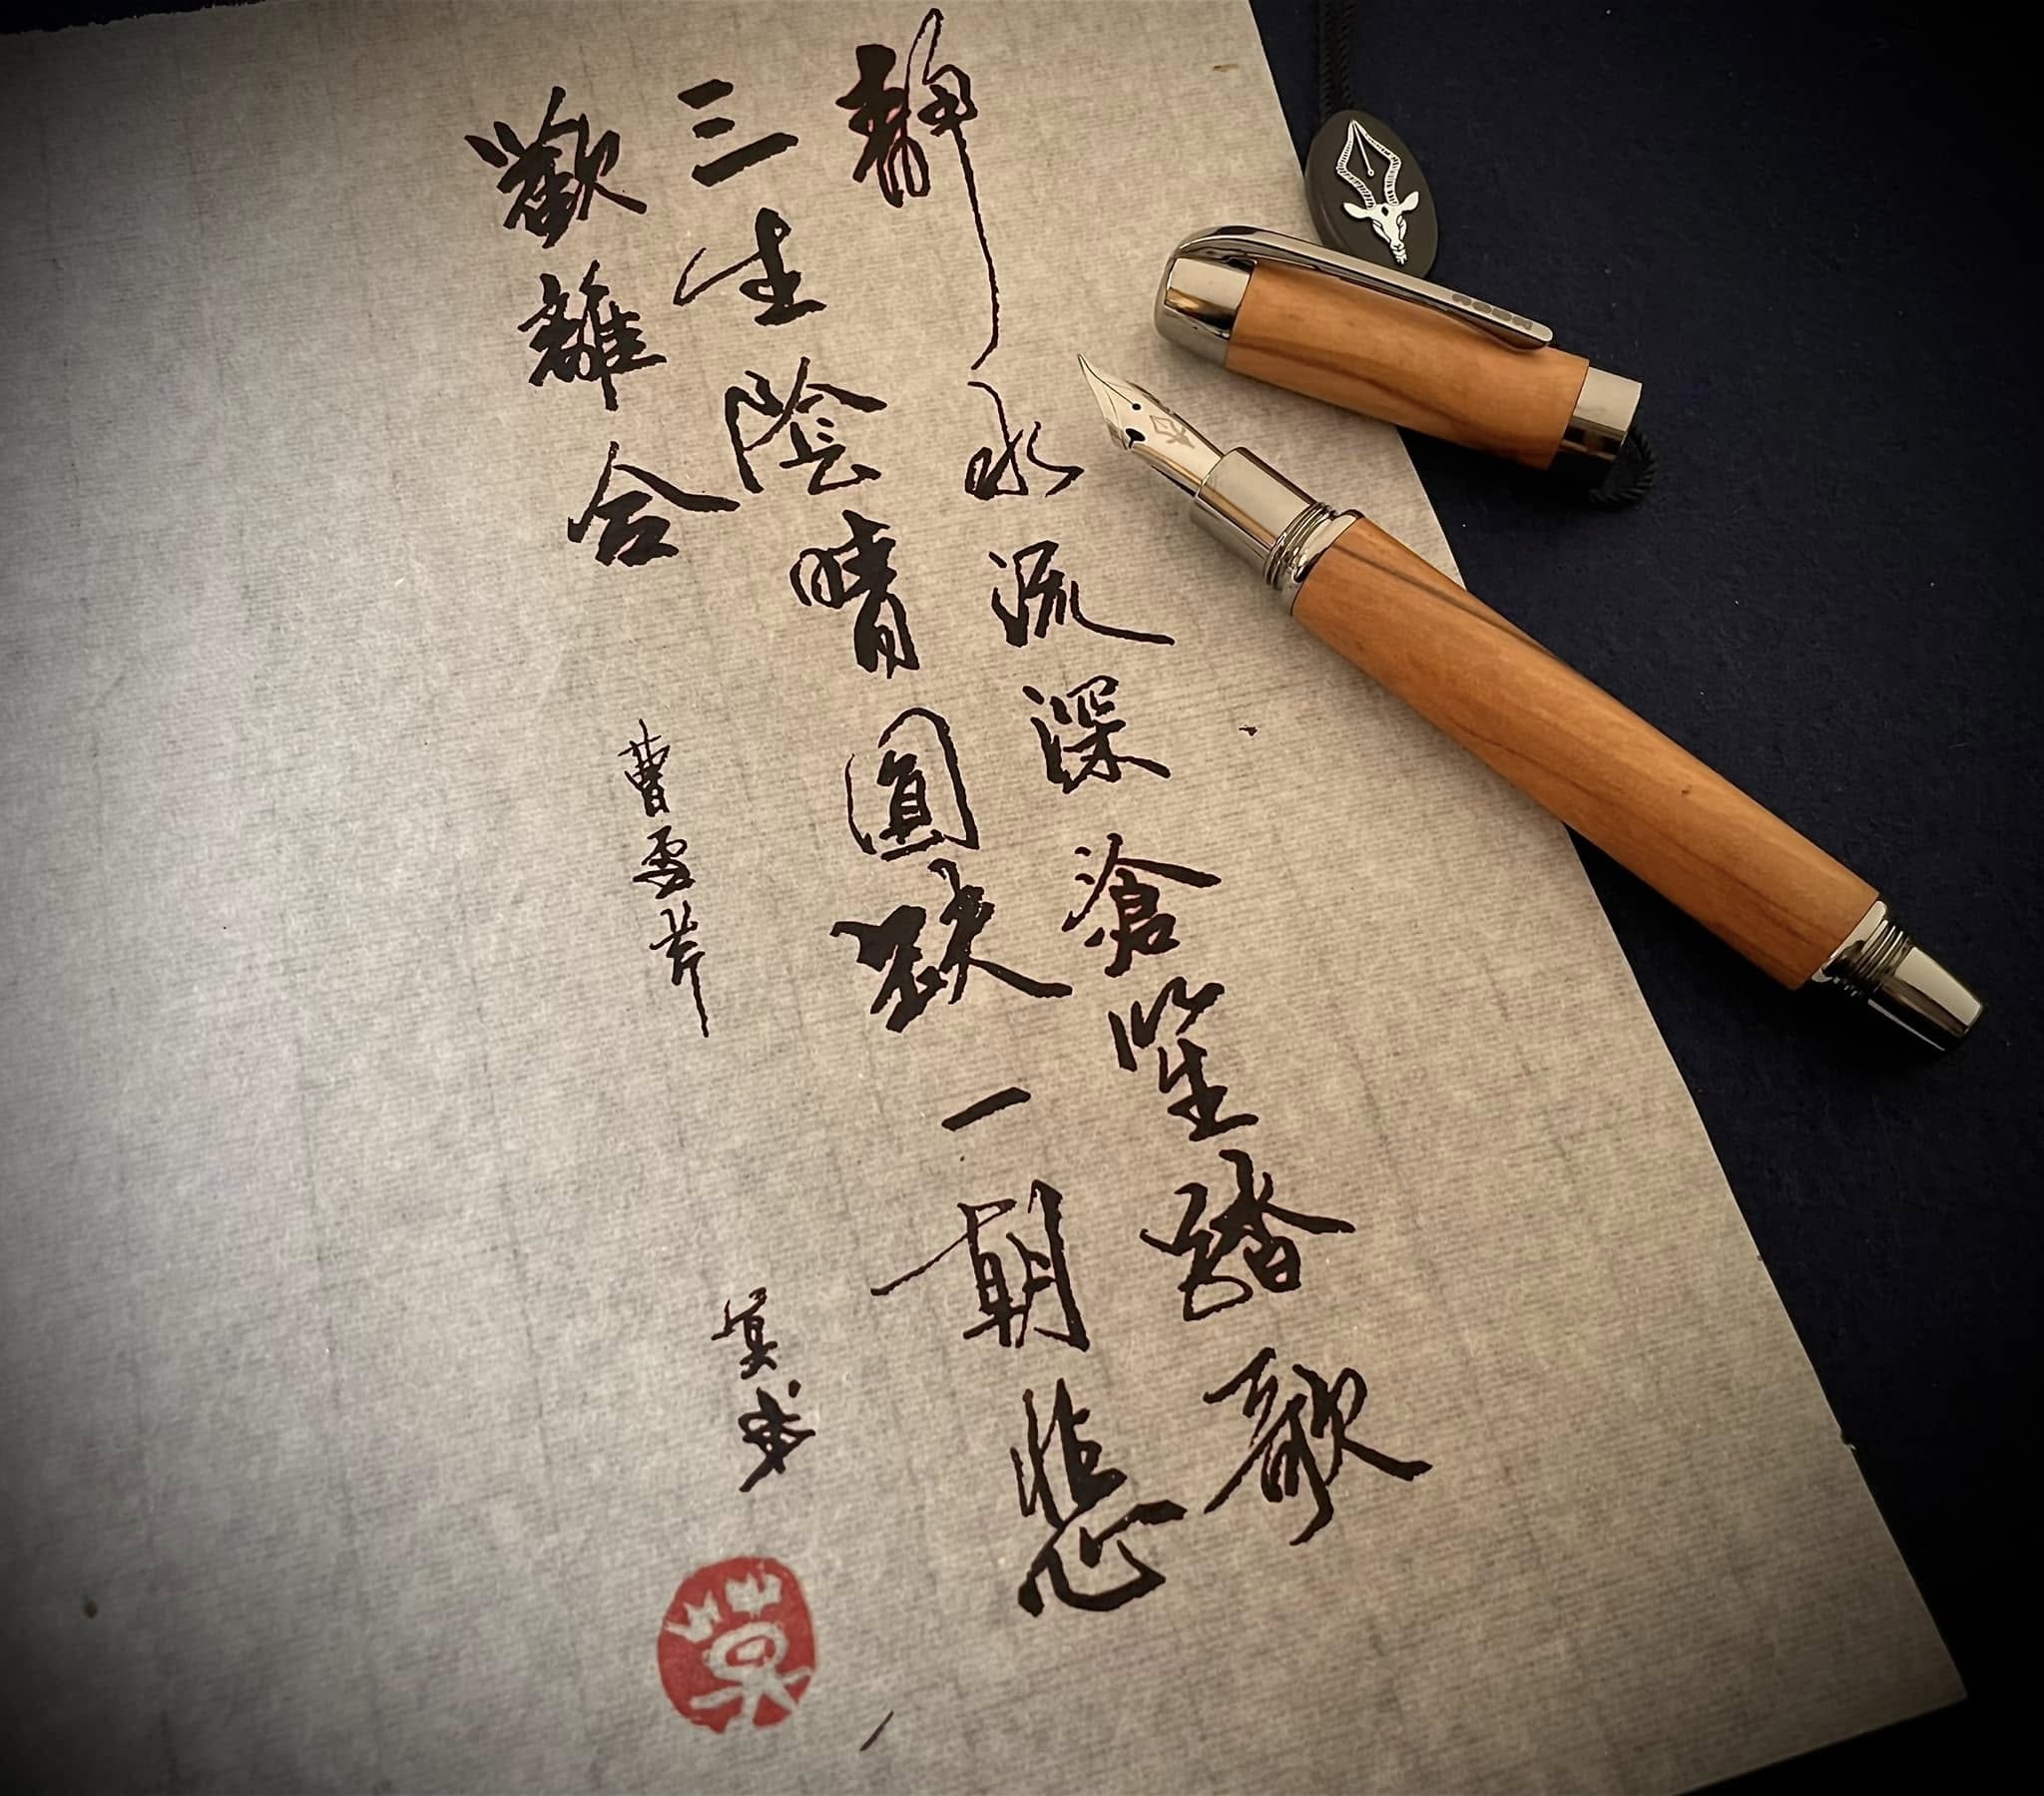 靜水流深滄笙踏歌
三生陰晴圓缺一朝悲
歡離合
曹雪芹
莫
莫